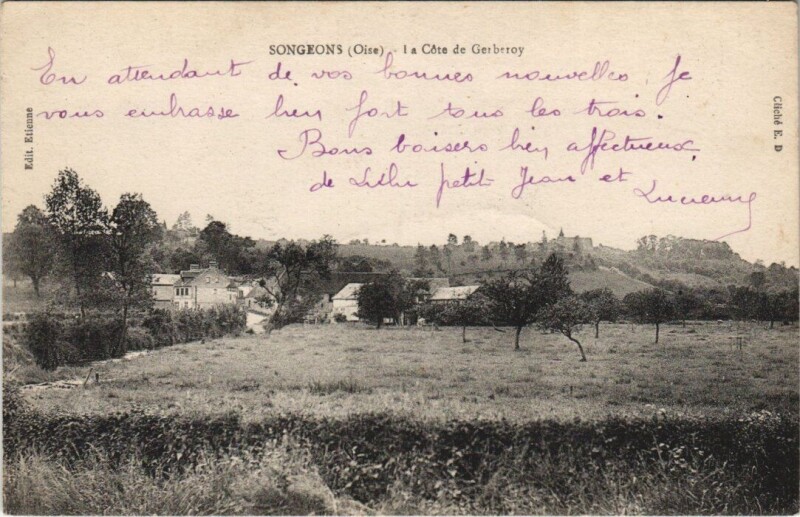 SONGEONS (Oise) - La Côte de Gerberoy
En attendant de vos bonnes nouvelles, Je
vous embrasse bien fort tous les trois.
Bons baisers bien affectueux
de petit Jean et Lucienne
Edit. Etienne
Cliché E. D